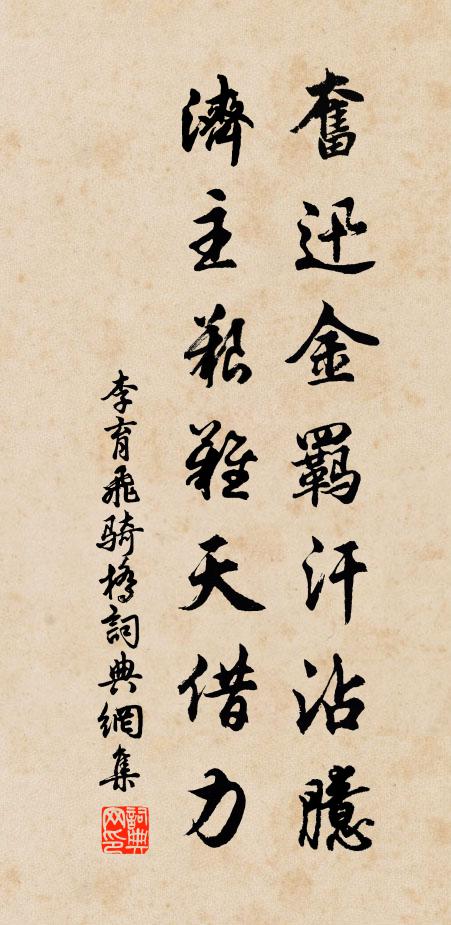 奮迅金羈汗沾臆
濟主艱難天借力
李育飛騎橋詞典網集
詞典網印